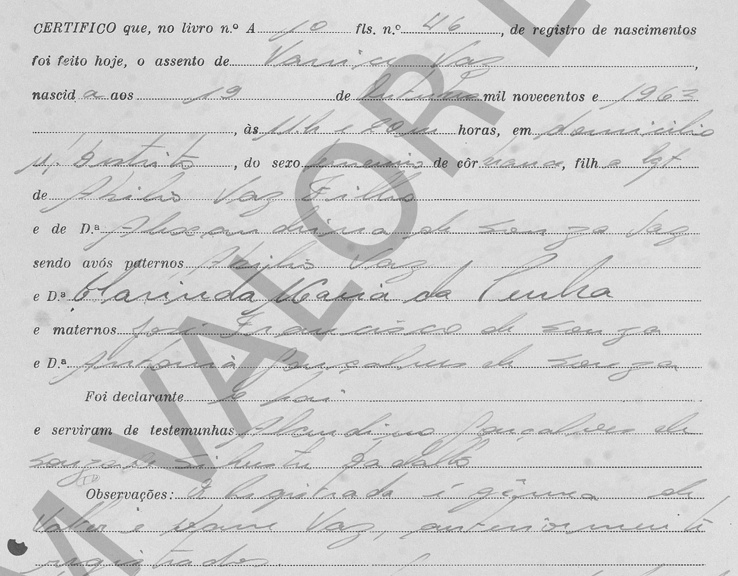 CERTIFICO que, no livro n.º A 10 fls. n.º 46, de registro de nascimentos
foi feito hoje, o assento de Vaz,
nascida aos 19 de Outubro mil novecentos e 1963
, às 11 h e 20 m horas, em domicilio
n/ Distrito, do sexo feminino de côr branca, filha lgt
de Abilio Vaz Filho
e de D.ª Alexandrina de Souza Vaz
sendo avós paternos Abilio Vaz
e D.ª Clarinda Maria da Penha
e maternos José Francisco de Souza
e D.ª Antonia Gonçalves de Souza
Foi declarante o pai
e serviram de testemunhas Gonçalves de
Souza e Silvestre
Observações: A Registrada é gêmea de
e Vaz, anteriormente
registrados
M VALOR L